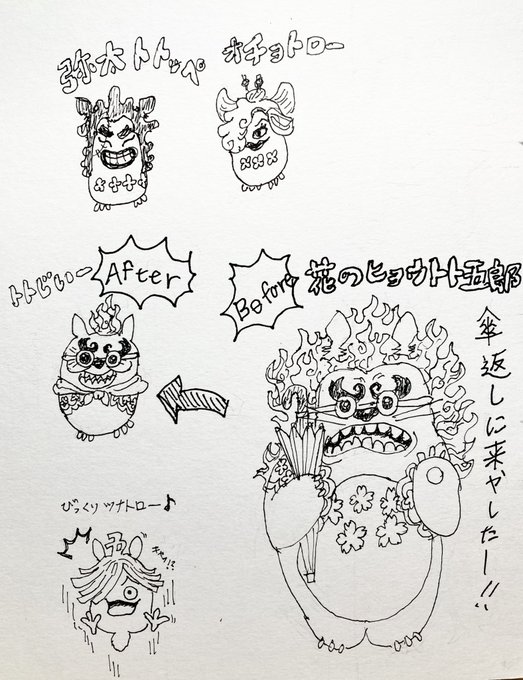 弥太トトッペ
オチョトロー
トトビぃー
After
Before
花のヒョウトト五郎
傘返しに来やしたー!!
びっくりツナトロー♪
五